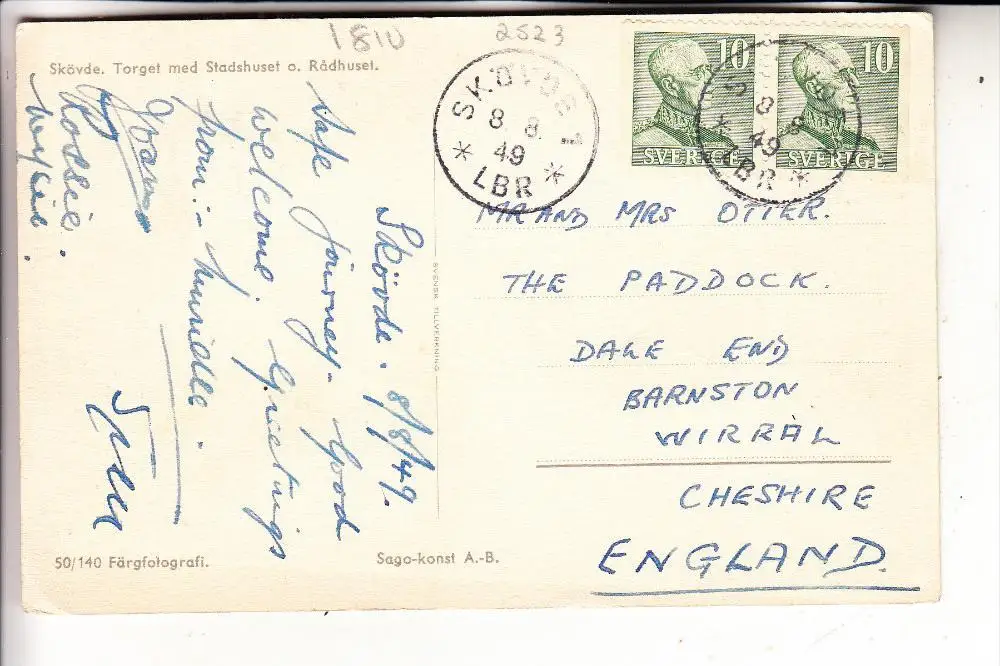 1810
2523
Skövde. Torget med Stadshuset o. Rådhuset.
SKÖVDE 1
8 8
49
* LBR *
10
SVERIGE
10
SVERIGE
8 8
49
* LBR *
Skövde. 8/8/49.
Safe journey - Good
welcome. Greetings
from:-
MR AND MRS OTTER.
THE PADDOCK.
DALE END
BARNSTON
WIRRAL
CHESHIRE
ENGLAND.
SVENSK TILLVERKNING
50/140 Färgfotografi.
Sago-konst A.-B.